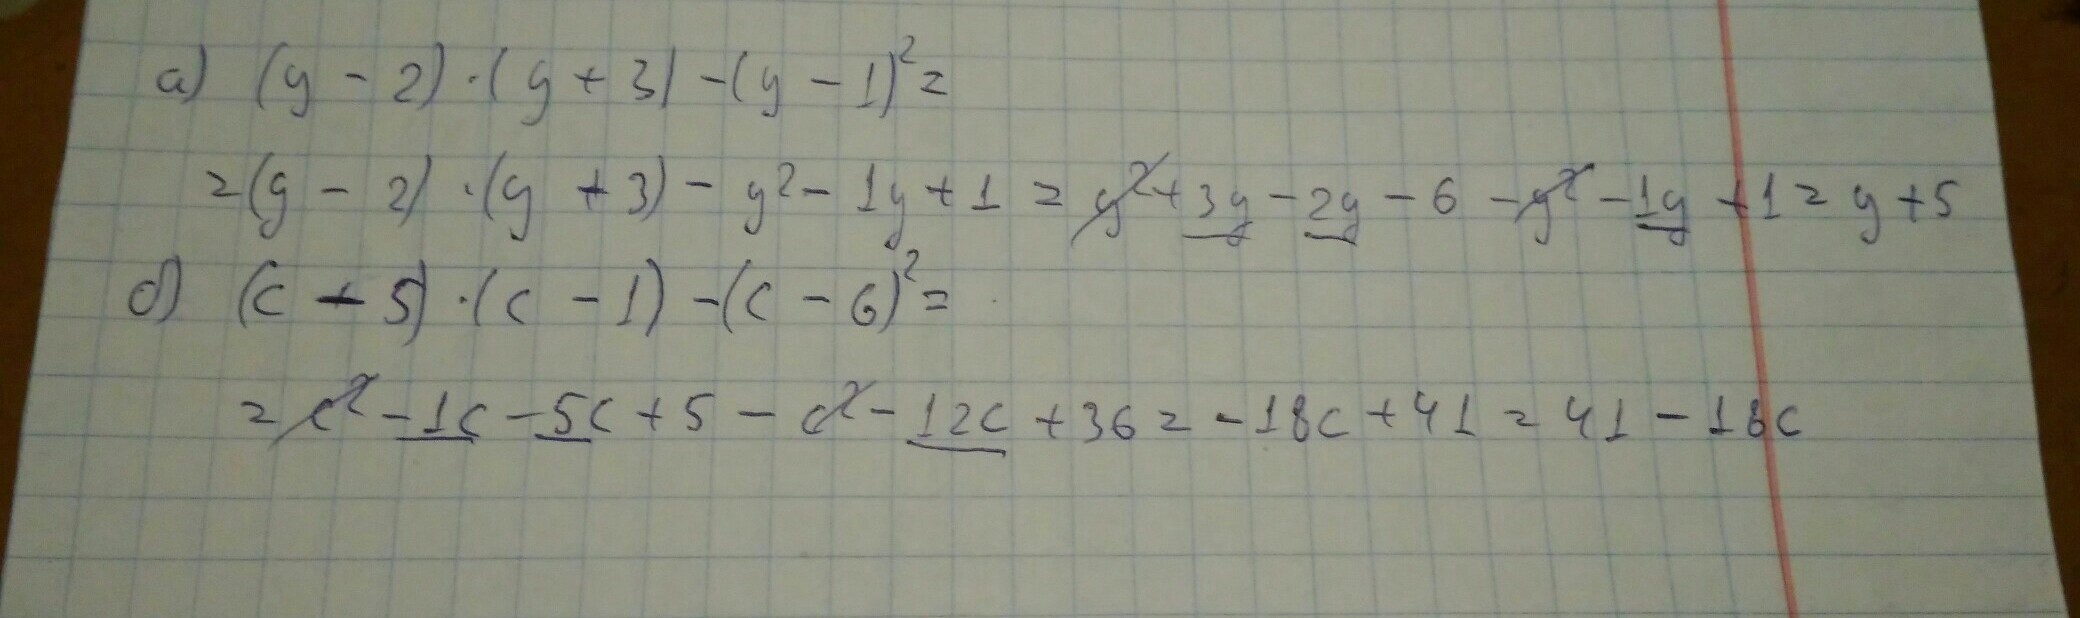 а) (y - 2) · (y + 3) - (y - 1)² =
= (y - 2) · (y + 3) - y² - 1y + 1 = y² + 3y - 2y - 6 - y² - 1y + 1 = y + 5
б) (c - 5) · (c - 1) - (c - 6)² =
= c² - 1c - 5c + 5 - c² - 12c + 36 = - 18c + 41 = 41 - 18c